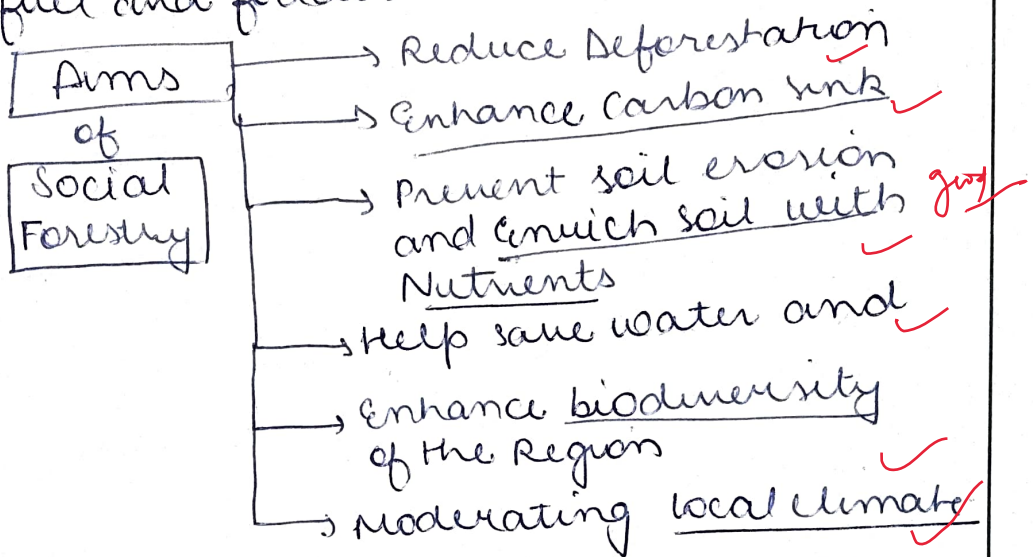 fuel and
Aims
of
Social
Forestry
Reduce Deforestation
Enhance Carbon sink
Prevent soil erosion
and Enrich soil with
good
Nutrients
Help save water and
Enhance biodiversity
of the Region
Moderating local climate